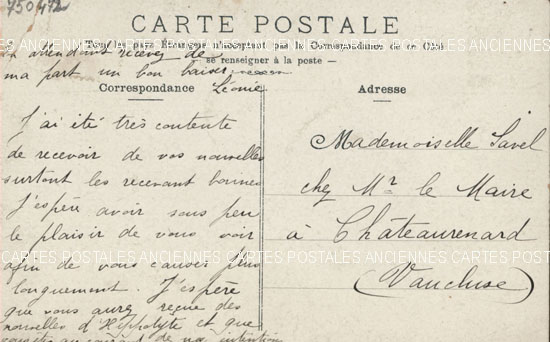 750472
CARTE POSTALE
Tous les pays Étrangers n'acceptent pas la Correspondance de ce Côté
se renseigner à la poste
en attendant recevez de
ma part un bon baiser
Léonie
Correspondance
J'ai été très contente
de recevoir de vos nouvelles
surtout les recevant bonnes
J'espère avoir sous peu
le plaisir de vous voir
afin de vous causer plus
longuement. J'espère
que vous aurez reçue des
nouvelles d'Hippolyte et que
de ma intention
Adresse
Mademoiselle Savel
chez Mr le Maire
à Châteaurenard
(Vaucluse)
CARTES POSTALES ANCIENNES